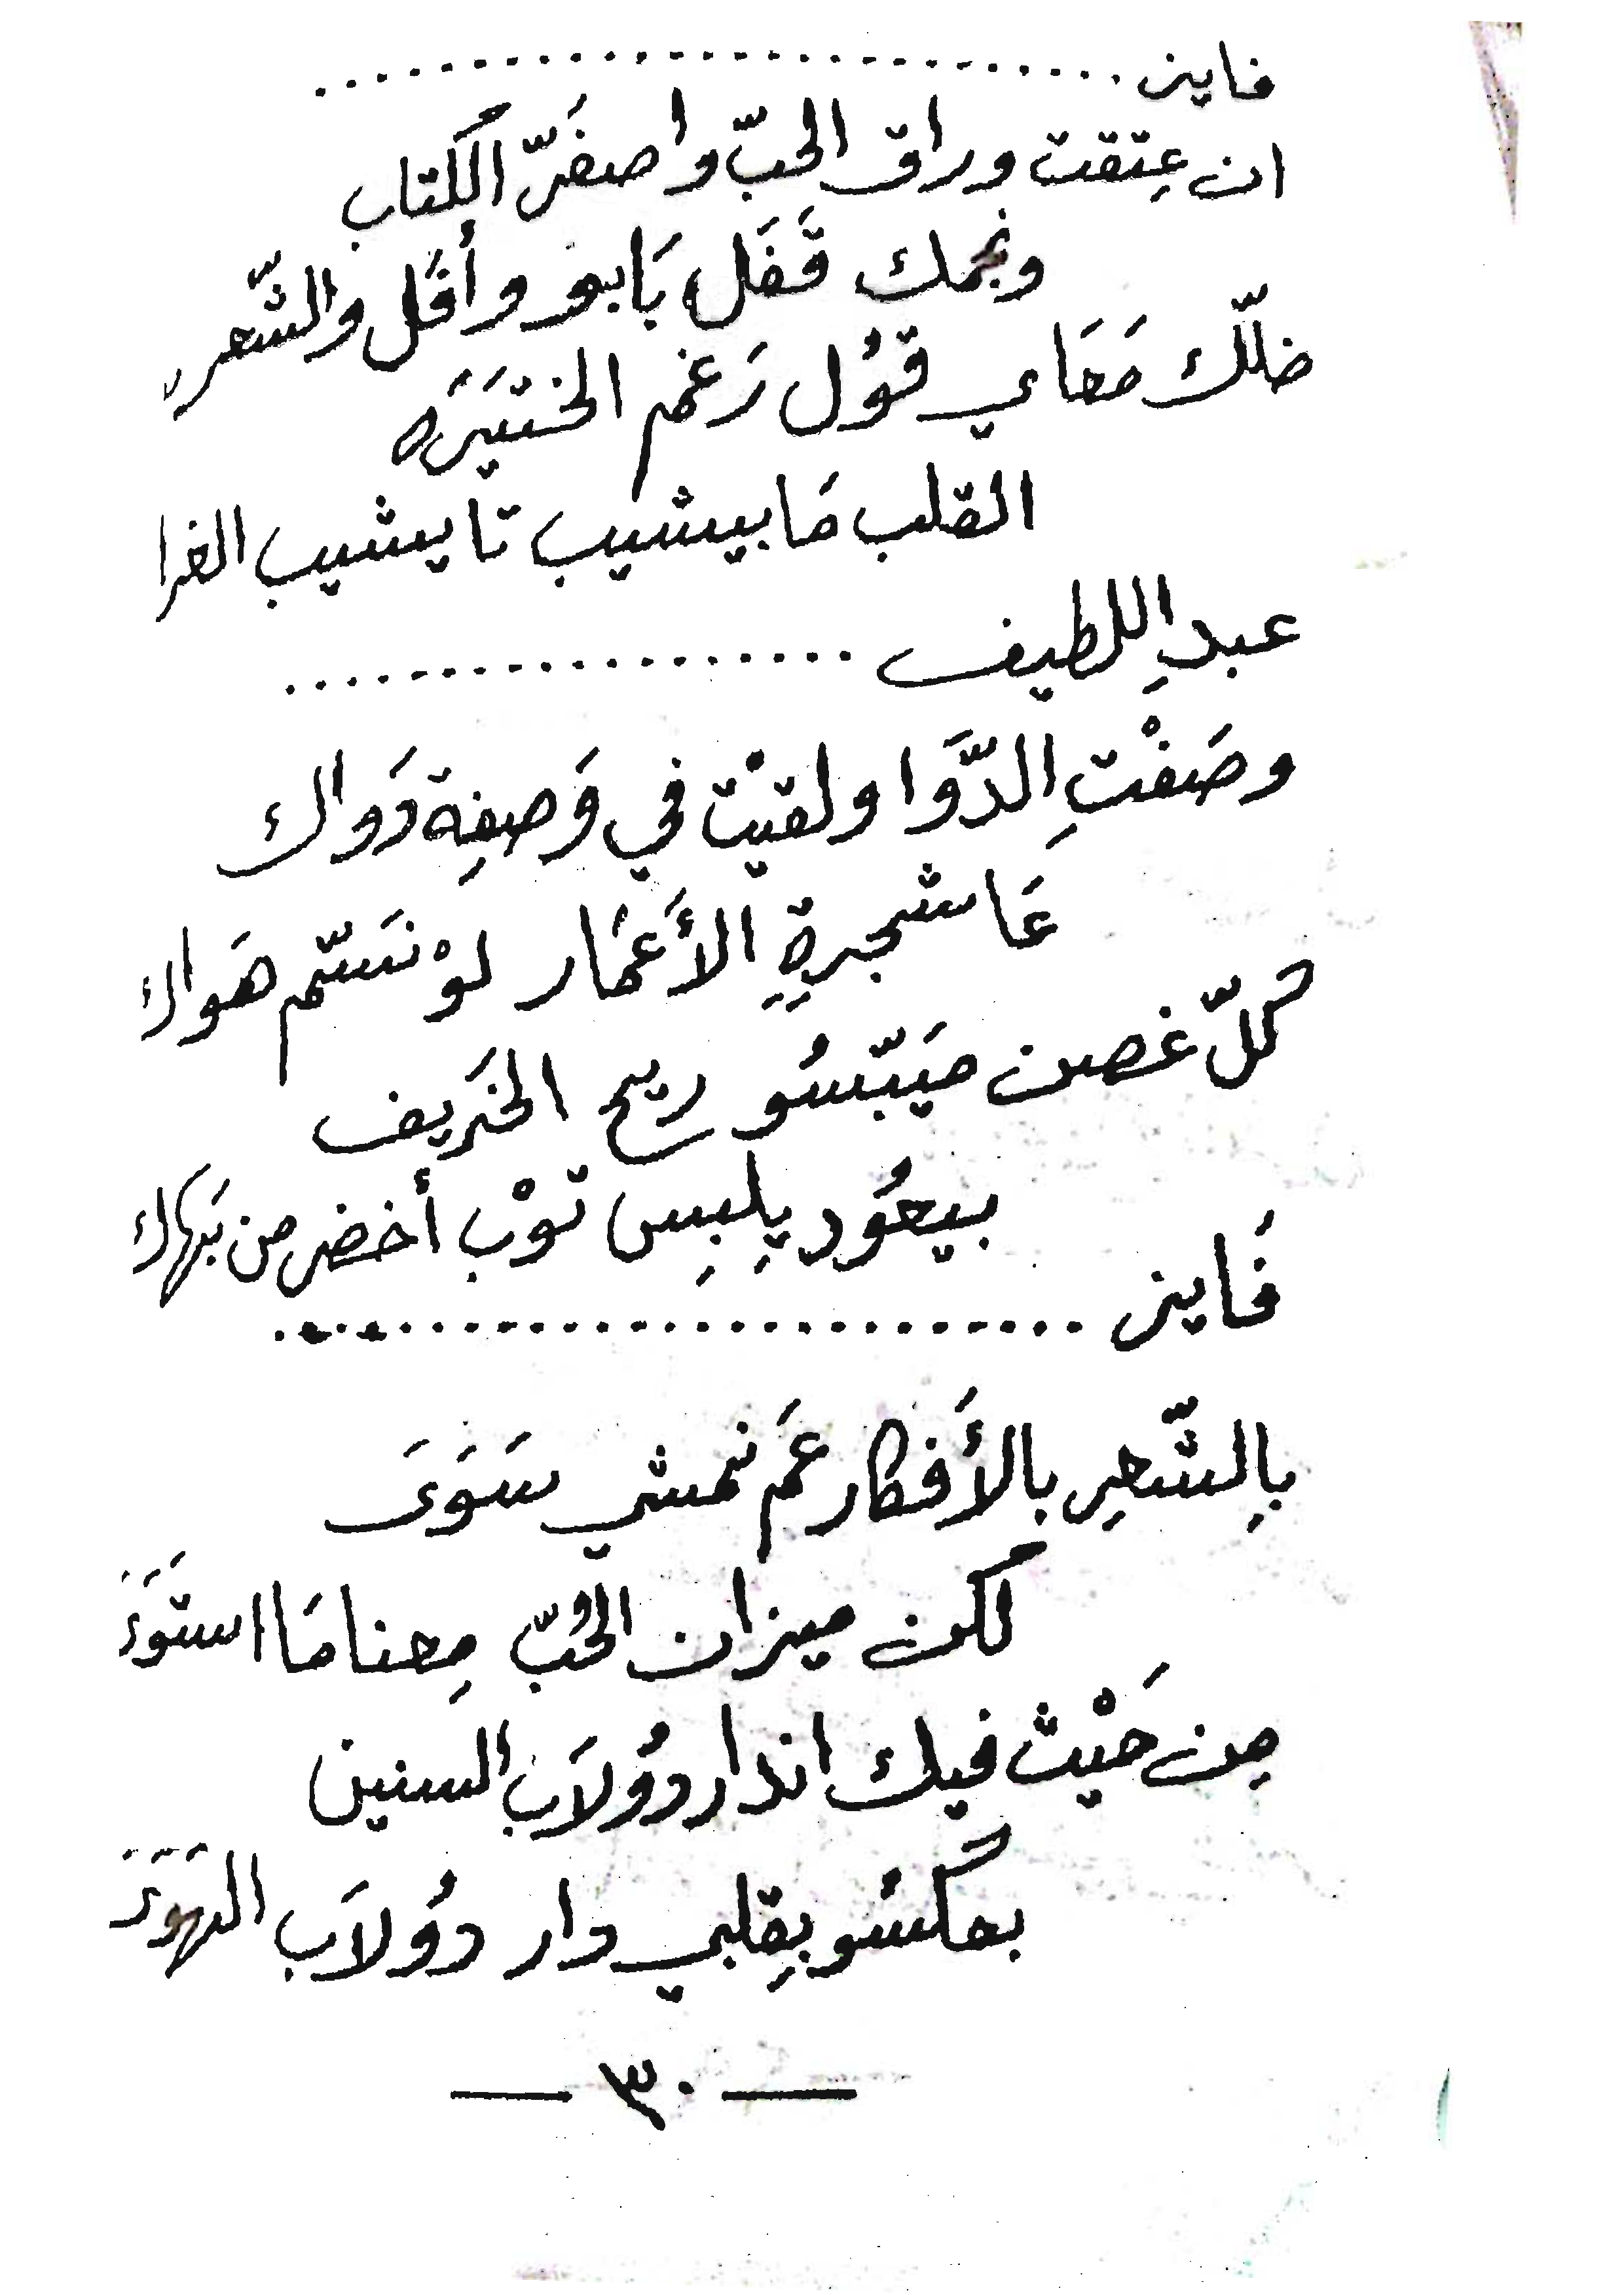 فايز ..........................
ان عِتقت وراق الحبّ واصفَرّ الكتاب
ونجمك قَفَل بَابو وأفَل والشّعر
ضلّك مَعَاي قوُل رَغم الختيَرَه
القلب مَا بيشيب تا يشيب الغرا
عبدِ اللطيف ..................
وصَفْتِ الدَّوَا ولقيْت في وَصفِة دَوَاك
عَا شجرةِ الأَعمَار لوْ نسَّم هَواك
كلّ غصن ميَبّسُو ريح الخَريف
بيعوُد يِلبِس توْب أخضر من بَهاك
فَايز ..........................
بِالشّعِر بالأَفكار عَم نمشي سَوَىَ
لكن ميزان الحُبّ مِعنا مَا استَوَىَ
مِن حَيْث فيك اندار دوُلاَب السنين
بعكسُو بِقلبي دار دوُلاَب الهَوَىَ
— ٣٠ —